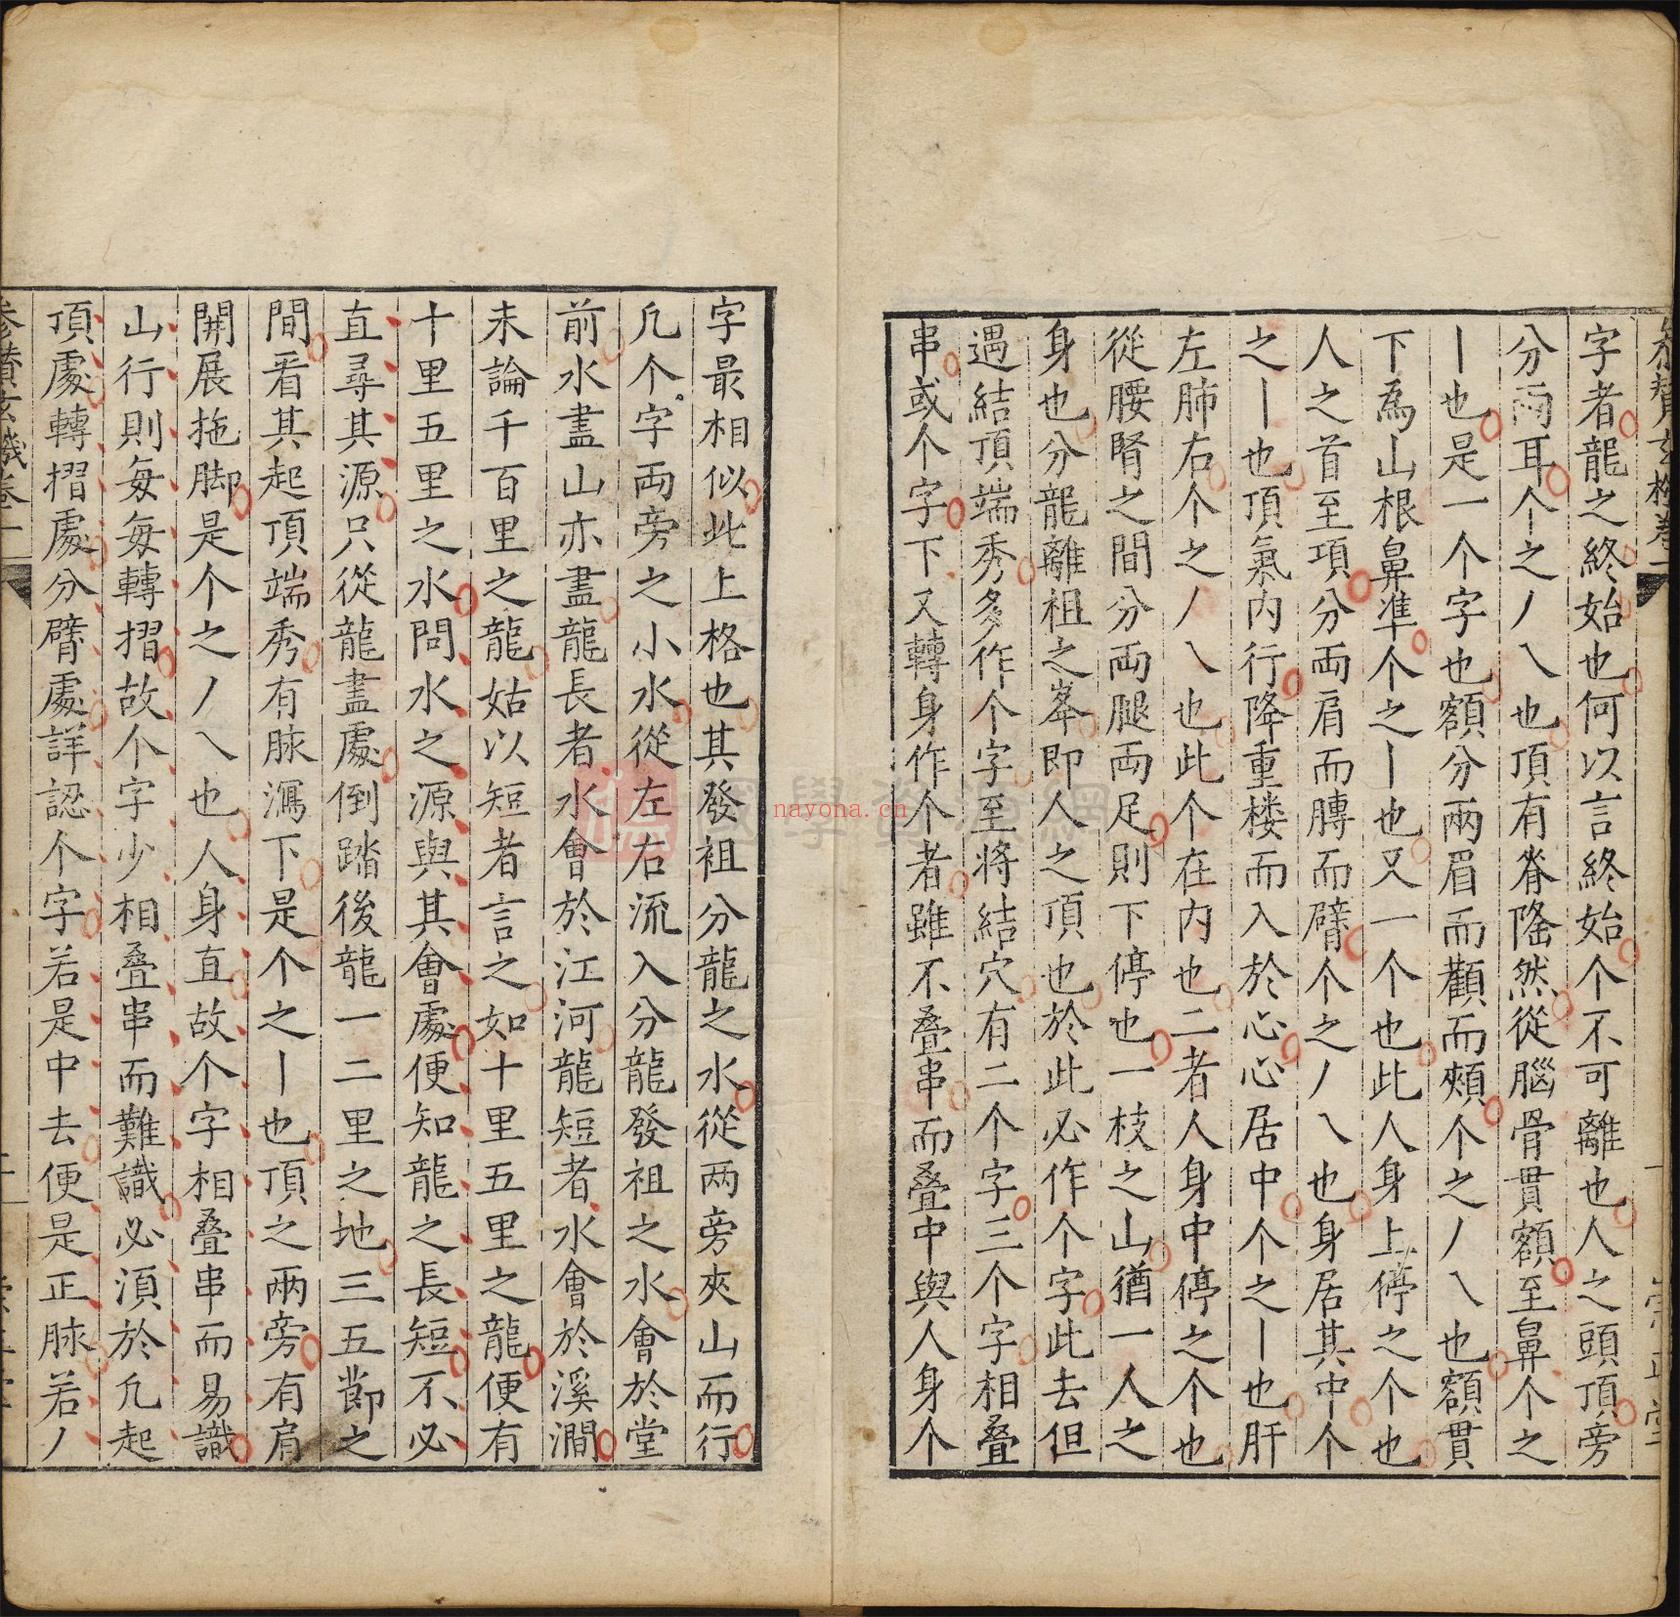 字者龍之終始也何以言終始个不可離也人之頭頂旁
分兩耳个之丿乀也頂有脊隆然從腦骨貫額至鼻个之
丨也是一个字也額分兩眉而顴而頰个之丿乀也額貫
下為山根鼻準个之丨也又一个也此人身上停之个也
人之首至項分兩肩而膊而臂个之丿乀也身居其中个
之丨也頂氣内行降重楼而入於心心居中个之丨也肝
左肺右个之丿乀也此个在内也二者人身中停之个也
從腰腎之間分両腿両足則下停也一枝之山猶一人之
身也分龍離祖之峯即人之頂也於此必作个字此去但
遇結頂端秀多作个字至將結穴有二个字三个字相叠
串或个字下又轉身作个者雖不叠串而叠中與人身个
字最相似此上格也其發祖分龍之水從两旁夾山而行
凡个字両旁之小水從左右流入分龍發祖之水會於堂
前水盡山亦盡龍長者水會於江河龍短者水會於溪澗
未論千百里之龍姑以短者言之如十里五里之龍便有
十里五里之水問水之源與其會處便知龍之長短不必
直尋其源只從龍盡處倒踏後龍一二里之地三五節之
間看其起頂端秀有脉瀉下是个之丨也頂之兩旁有肩
開展拖脚是个之丿乀也人身直故个字相叠串而易識
山行則每每轉摺故个字少相叠串而難識必須於凡起
頂處轉摺處分臂處詳認个字若是中去便是正脉若丿
參贊玄機卷一
navona.cn